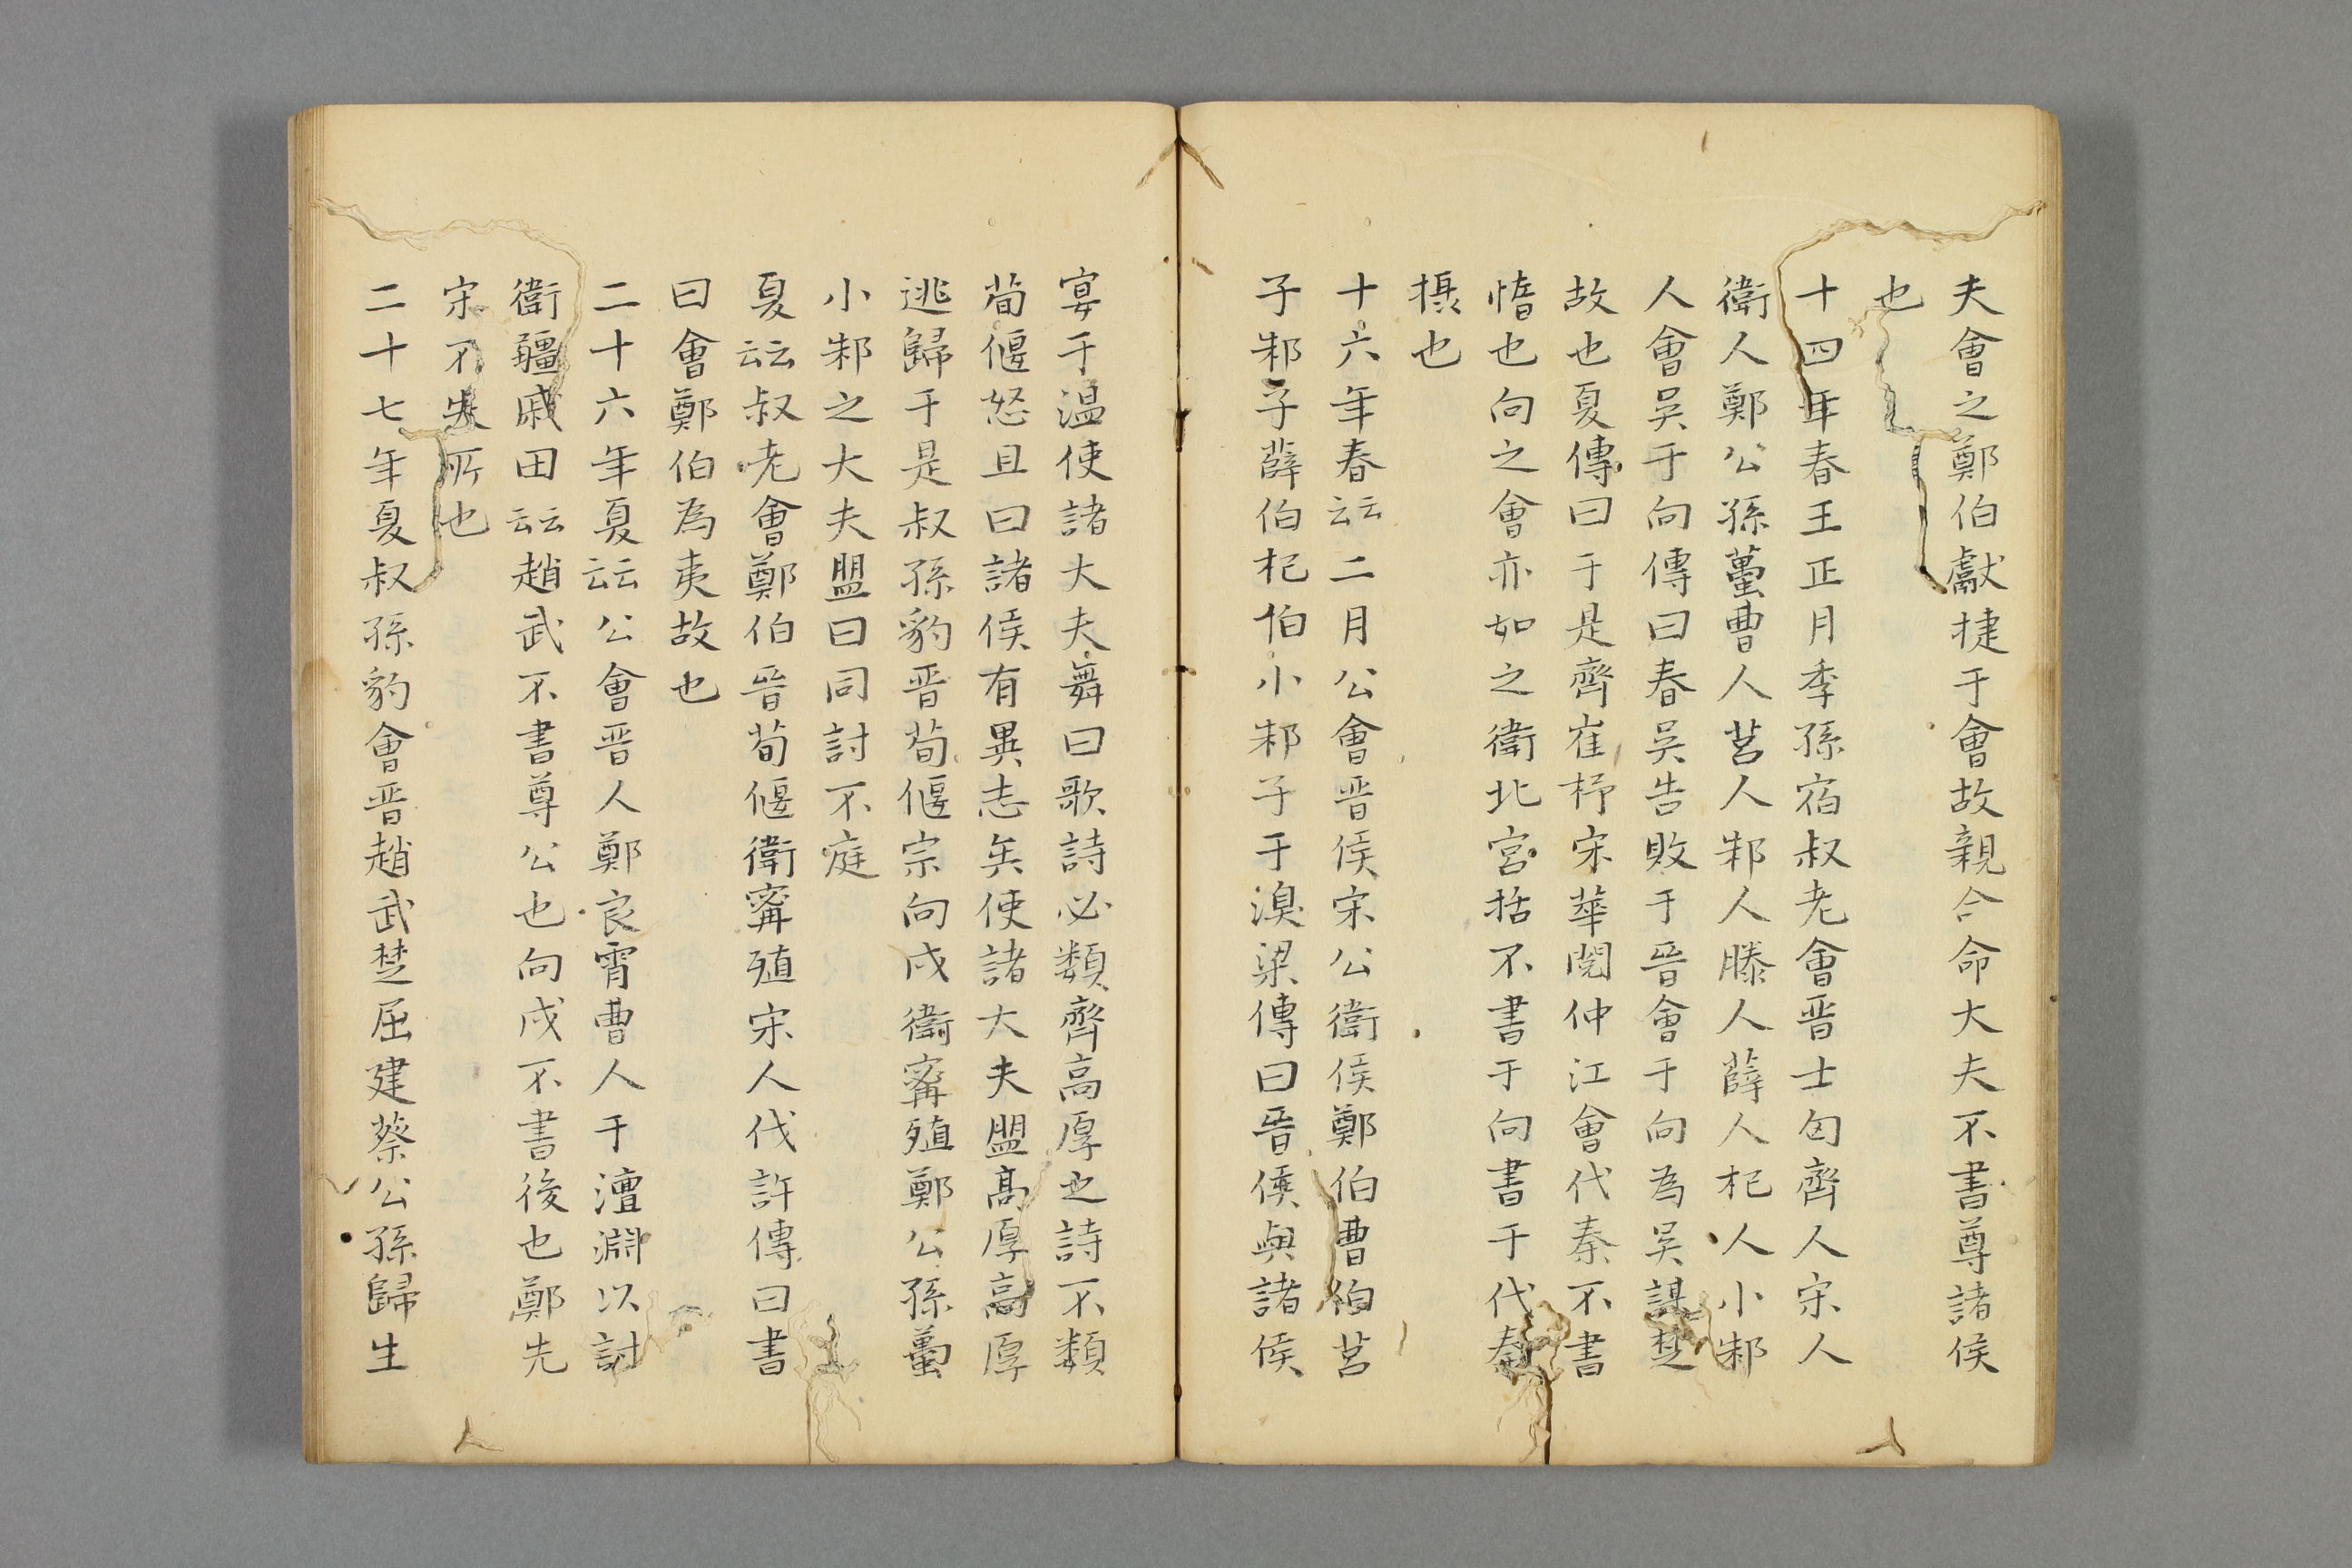 夫會之鄭伯獻捷于會故親合命大夫不書尊諸侯
也
十四年春王正月季孫宿叔老會晋士匄齊人宋人
衛人鄭公孫蠆曹人莒人邾人滕人薛人杞人小邾
人會吳于向傳曰春吳告敗于晉會于向為吳謀楚
故也夏傳曰于是齊崔杼宋華閱仲江會代秦不書
惰也向之會亦如之衛北宮括不書于向書于代秦
攝也
十六年春云云二月公會晋侯宋公衛侯鄭伯曹伯莒
子邾子薛伯杞伯小邾子于溴梁傳曰晉侯與諸侯
宴于温使諸大夫舞曰歌詩必類齊高厚之詩不類
荀偃怒且曰諸侯有異志矣使諸大夫盟高厚高厚
逃歸于是叔孫豹晋荀偃宗向戌衛寗殖鄭公孫蠆
小邾之大夫盟曰同討不庭
夏云云叔老會鄭伯晉荀偃衛寗殖宋人伐許傳曰書
曰會鄭伯為夷故也
二十六年夏云云公會晋人鄭良霄曹人于澶淵以討
衛疆戚田云云趙武不書尊公也向戌不書後也鄭先
宋不失所也
二十七年夏叔孫豹會晋趙武楚屈建蔡公孫歸生